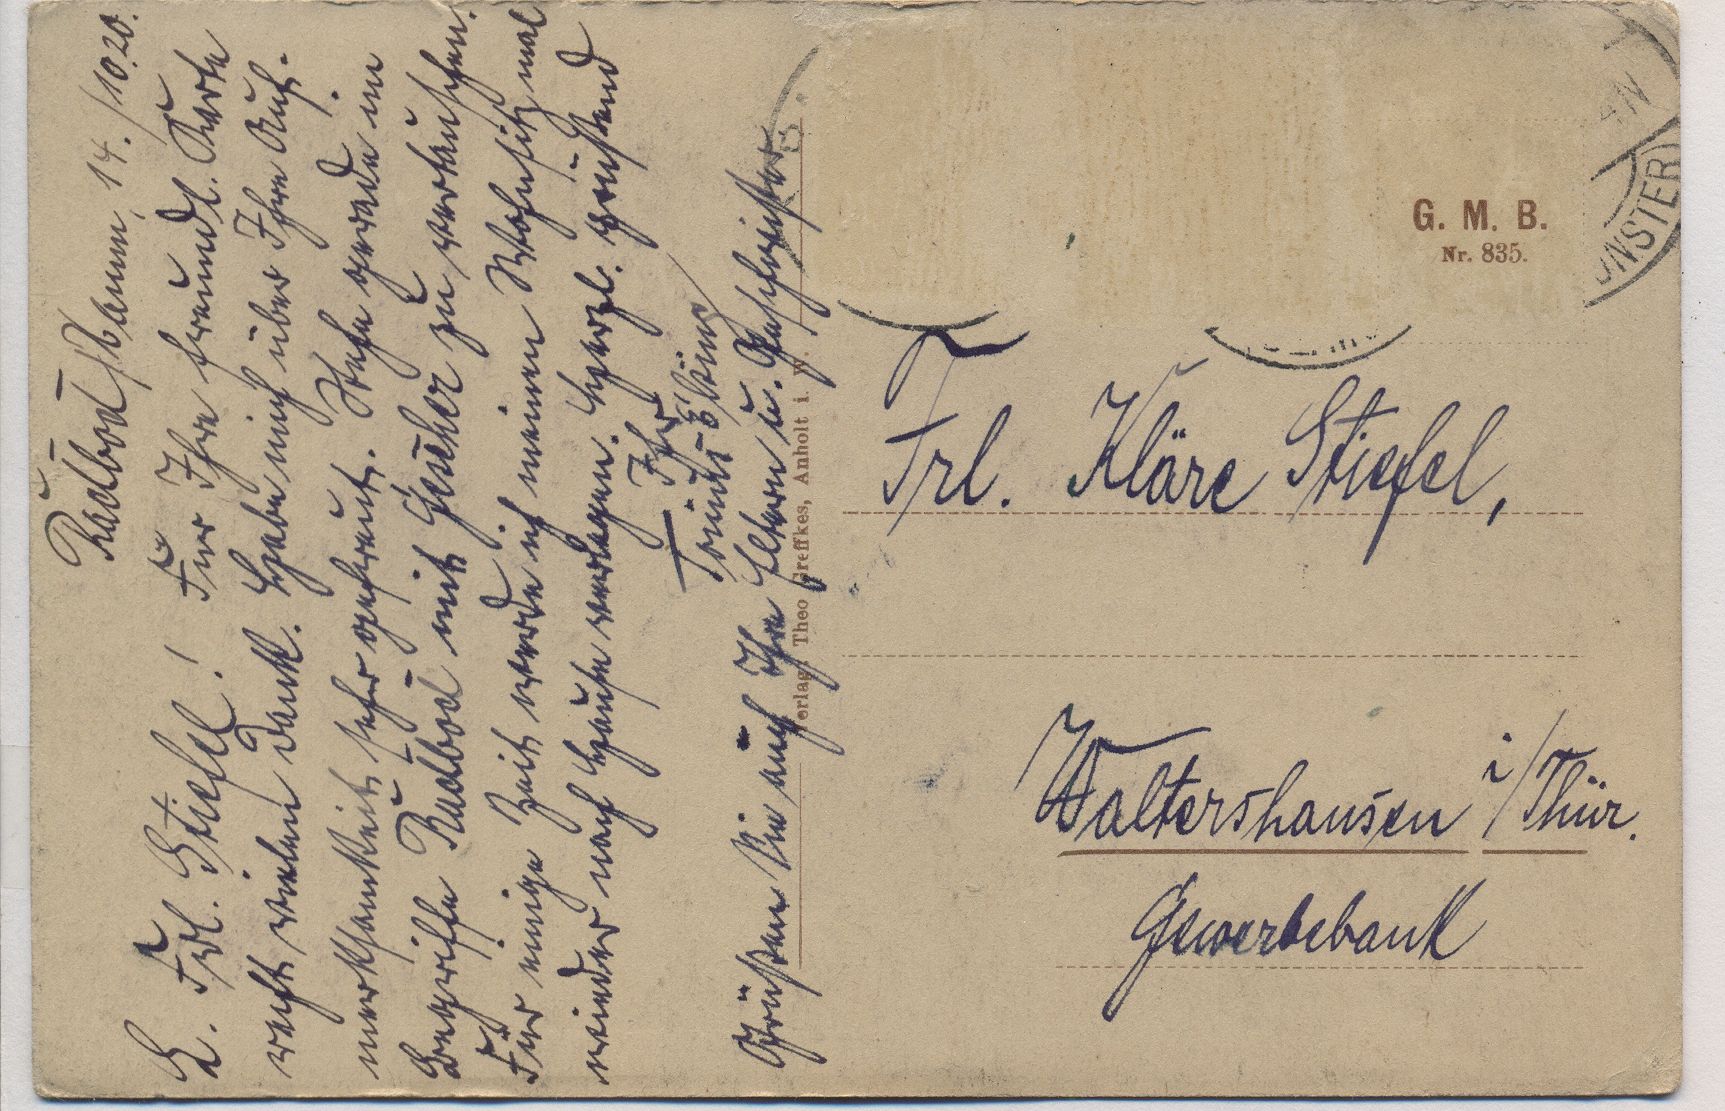 Radbod/Hamm, 14./10.20.
L. Frl. Stiefel! Für Ihre freundl. Karte
recht vielen Dank. Habe mich über Ihre Auf-
merksamkeit sehr gefreut. Stehe gerade im
Begriffe Radbod mit Gescher zu vertauschen.
Für einige Zeit werde ich meinen Wohnsitz mal
wieder nach Hause verlegen. Herzl. grüßend
Ihr
Grüßen Sie auch Ihre Eltern u. Geschwister
Verlag Theo Greffkes, Anholt i. W.
G. M. B.
Nr. 835.
Frl. Kläre Stiefel,
Waltershausen i/Thür.
Gewerbebank